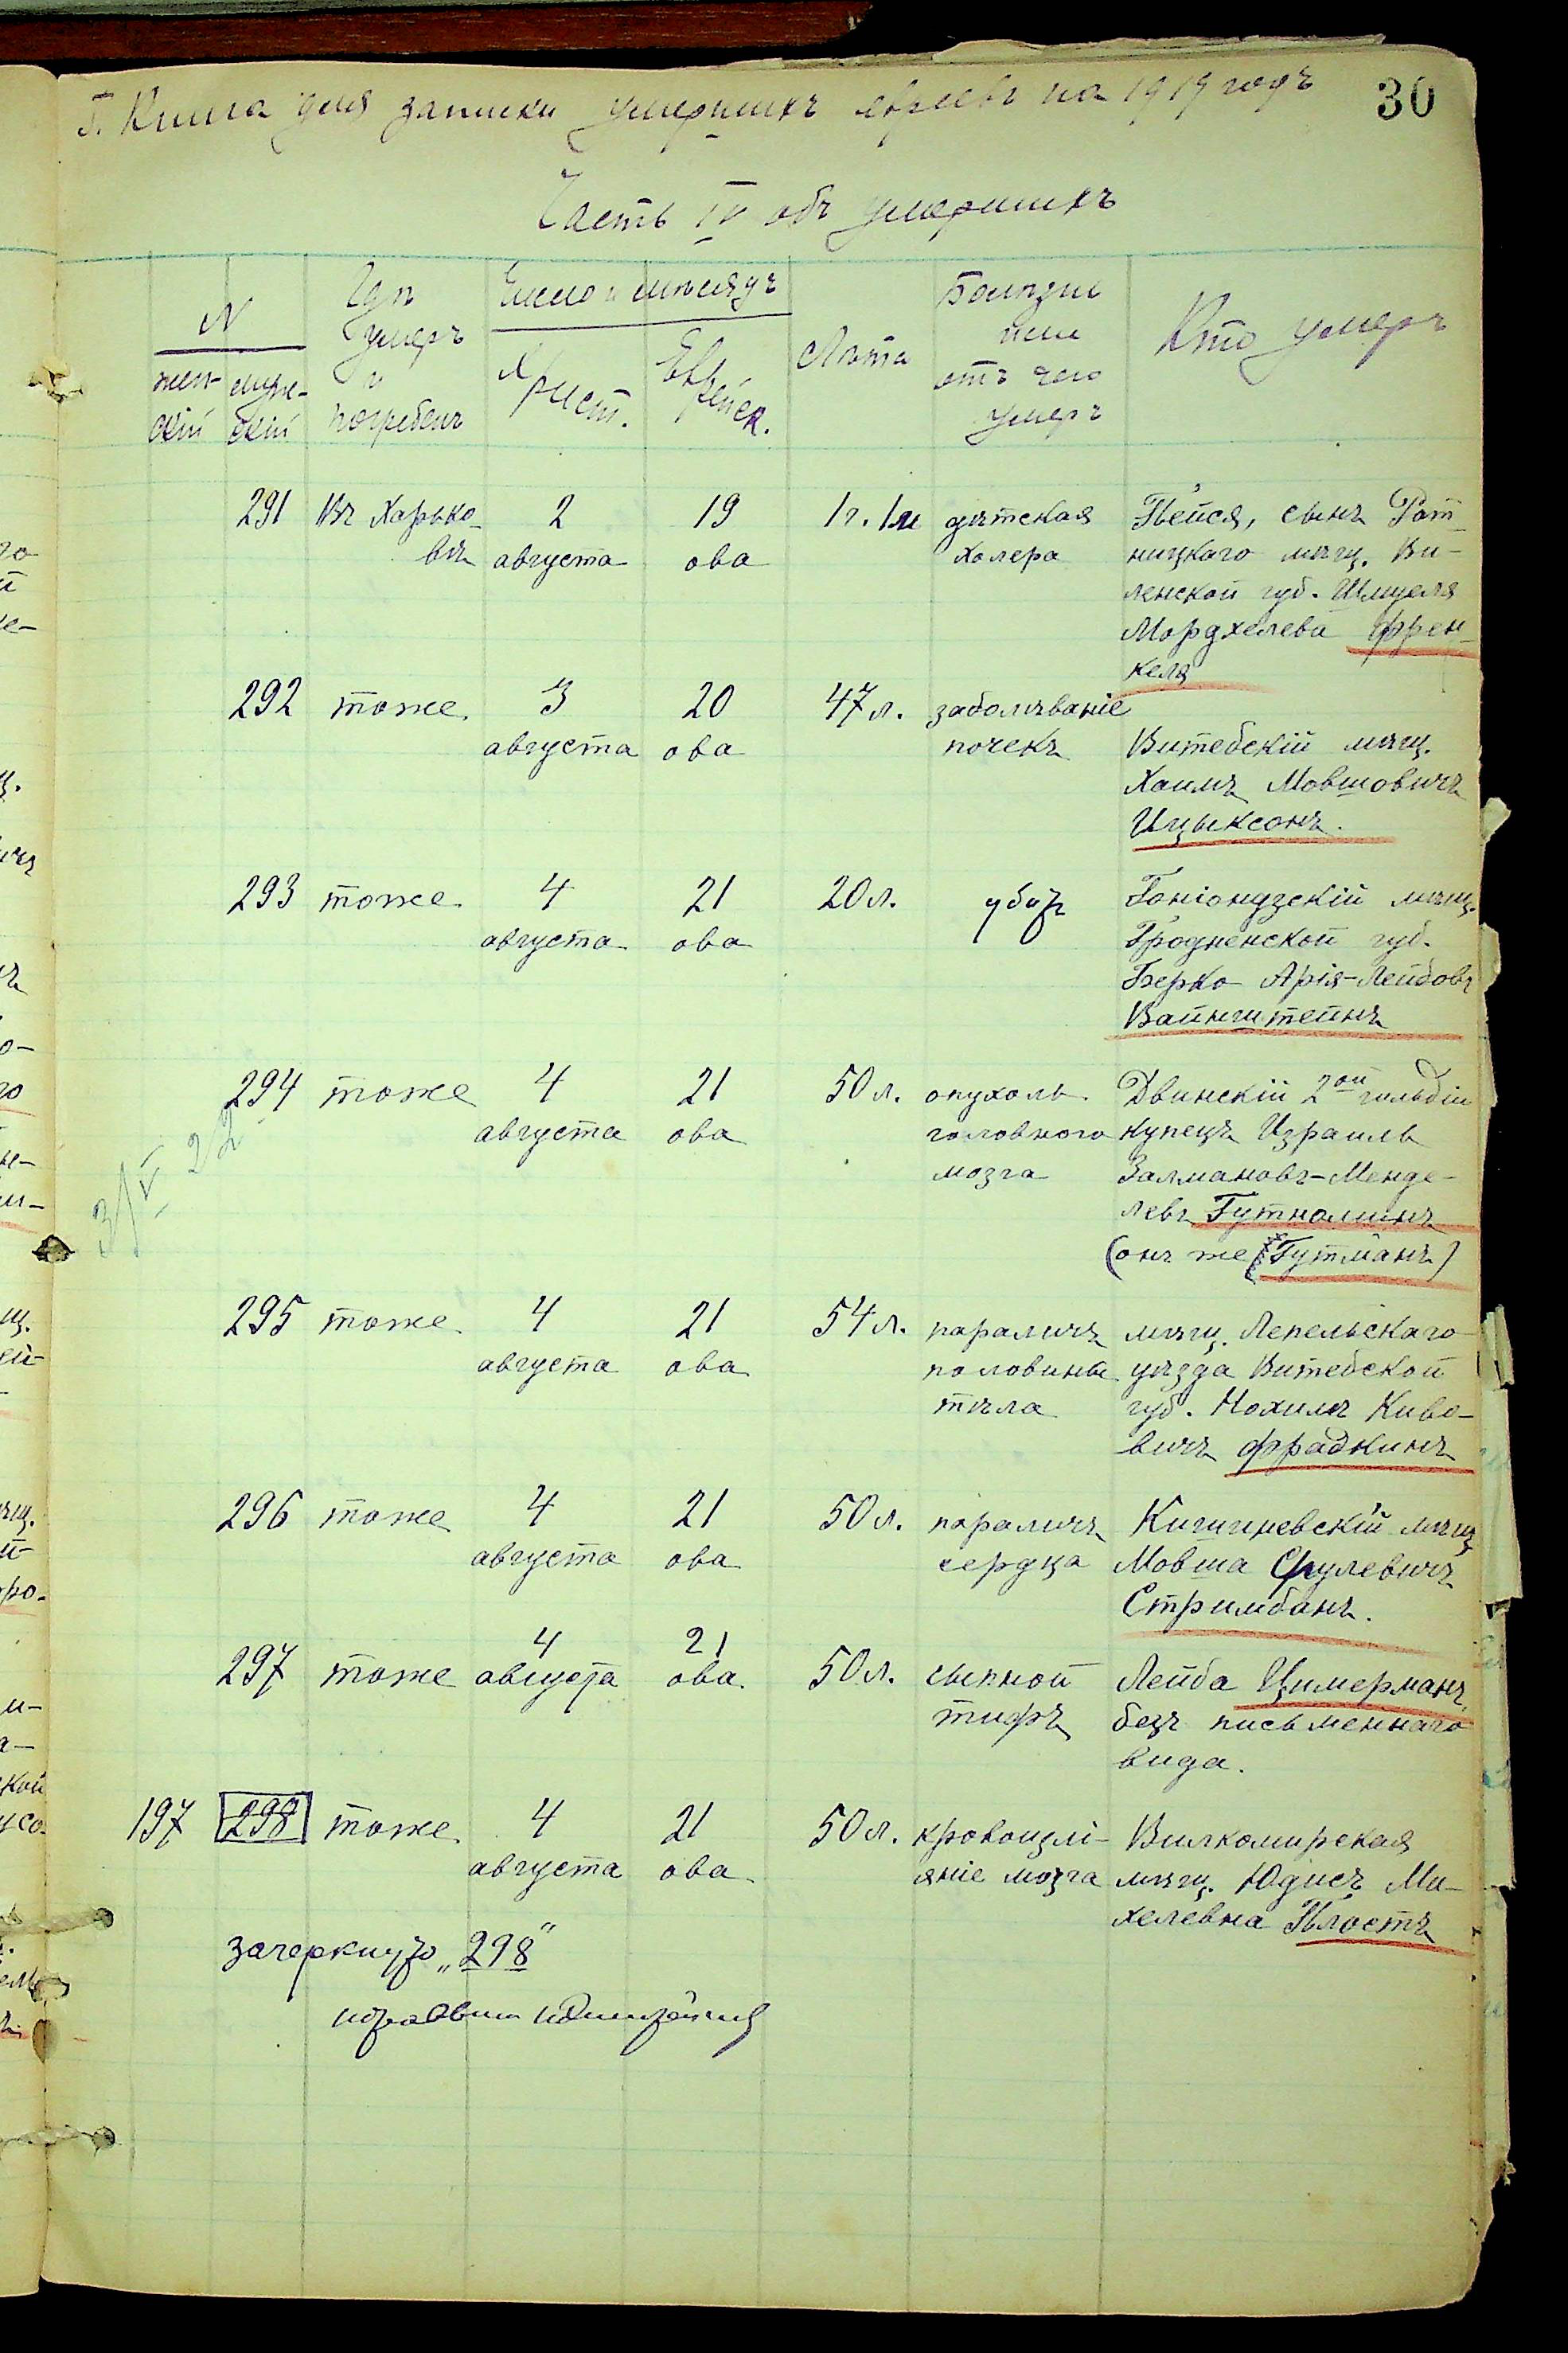 Книга для записки умершихъ евреевъ на 1919 годъ
30
Часть IV объ умершихъ
N
жен-
скій
муж-
скій
Гдѣ
умеръ
и
погребенъ
Число и мѣсяцъ
Христ.
Еврейск.
Лѣта
Болѣзнь
или
отъ чего
умеръ
Кто умеръ
291 Въ Харько- 2 19 1 г. 1 м дѣтская Пейся, сынъ Рат
вѣ августа ова холера ницкаго мѣщ. Ви-
ленской губ. Шмуеля
Мордхелева Френ-
келя
292 тоже 3 20 47 л. заболѣваніе
августа ова почекъ Витебскій мѣщ.
Хаимъ Мовшовичъ
Ицыксонъ.
293 тоже 4 21 20 л. убитъ Гоніондзскій мѣщ.
августа ова Гродненской губ.
Берко Арія-Лейбовъ
Вайнштейнъ
294 тоже 4 21 50 л. опухоль Двинскій 2ой гильдіи
августа ова головного купецъ Израиль
мозга Залмановъ-Менде-
левъ Гутналинъ
(онъ же Гутманъ)
31/V 22
295 тоже 4 21 54 л. параличъ мѣщ. Лепельскаго
августа ова половины уѣзда Витебской
тѣла губ. Нохимъ Киво-
вичъ Фрадкинъ
296 тоже 4 21 50 л. параличъ Кишиневскій мѣщ
августа ова сердца Мовша Срулевичъ
Стримбанъ.
4 21
297 тоже августа ова 50 л. сыпной Лейба Цимерманъ
тифъ безъ письменнаго
вида.
197 298 тоже 4 21 50 л. кровоизлі- Вилкомирская
августа ова яніе мозга мѣщ. Юдисъ Ми-
хелевна Плостъ
зачеркнуто „298"